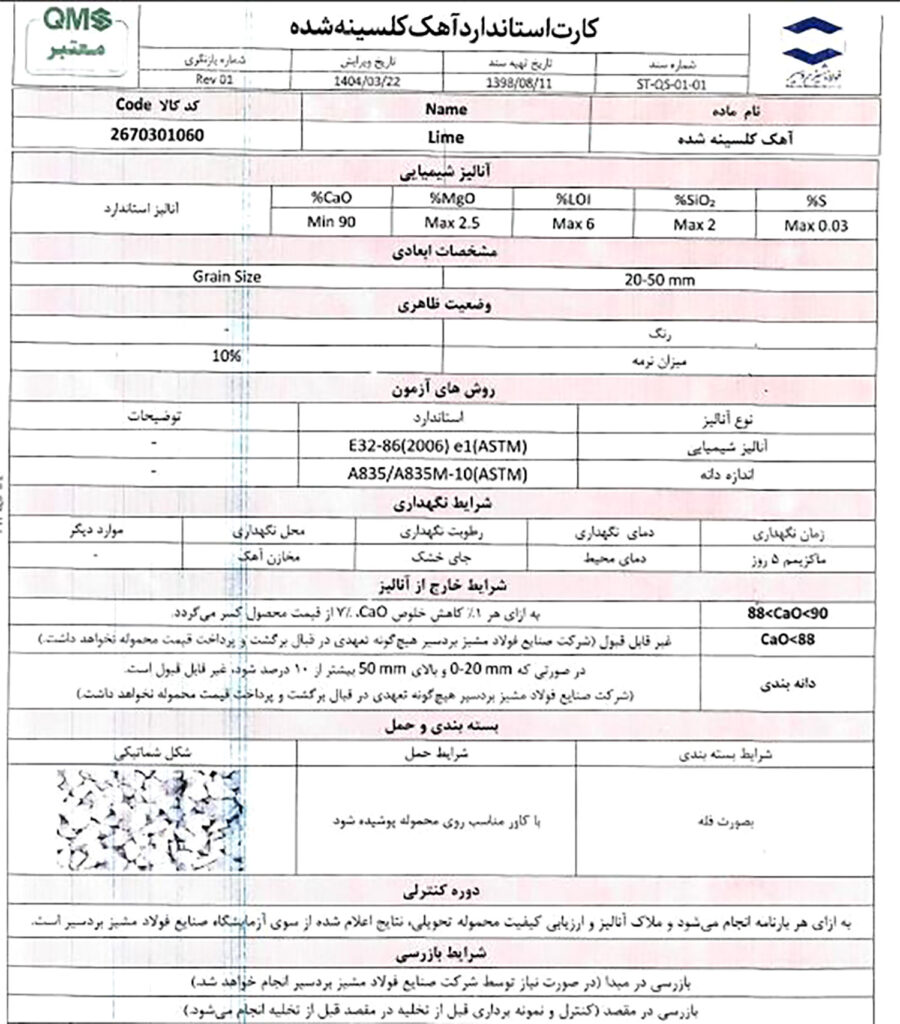 QMS
معتبر
کارت استاندارد آهک کلسینه شده
شماره سند
تاریخ تهیه سند
تاریخ ویرایش
شماره بازنگری
ST-QS-01-01
1398/08/11
1404/03/22
Rev 01
نام ماده
Name
کد کالا Code
آهک کلسینه شده
Lime
2670301060
آنالیز شیمیایی
آنالیز استاندارد
%CaO %MgO %LOI %SiO₂ %S
Min 90 Max 2.5 Max 6 Max 2 Max 0.03
مشخصات ابعادی
Grain Size
20-50 mm
وضعیت ظاهری
رنگ
-
میزان نرمه
10%
روش های آزمون
نوع آنالیز
استاندارد
توضیحات
آنالیز شیمیایی
E32-86(2006) e1(ASTM)
-
اندازه دانه
A835/A835M-10(ASTM)
-
شرایط نگهداری
زمان نگهداری
دمای نگهداری
رطوبت نگهداری
محل نگهداری
موارد دیگر
ماکزیمم ۵ روز
دمای محیط
جای خشک
مخازن آهک
-
شرایط خارج از آنالیز
88<CaO<90
به ازای هر ۱٪ کاهش خلوص CaO، ۷٪ از قیمت محصول کسر می‌گردد.
CaO<88
غیر قابل قبول (شرکت صنایع فولاد مشیز بردسیر هیچ‌گونه تعهدی در قبال برگشت و پرداخت قیمت محموله نخواهد داشت.)
دانه بندی
در صورتی که 0-20 mm و بالای 50 mm بیشتر از ۱۰ درصد شود، غیر قابل قبول است.
(شرکت صنایع فولاد مشیز بردسیر هیچ‌گونه تعهدی در قبال برگشت و پرداخت قیمت محموله نخواهد داشت.)
بسته بندی و حمل
شرایط بسته بندی
شرایط حمل
شکل شماتیکی
بصورت فله
با کاور مناسب روی محموله پوشیده شود
دوره کنترلی
به ازای هر بارنامه انجام می‌شود و ملاک آنالیز و ارزیابی کیفیت محموله تحویلی، نتایج اعلام شده از سوی آزمایشگاه صنایع فولاد مشیز بردسیر است.
شرایط بازرسی
بازرسی در مبدا (در صورت نیاز توسط شرکت صنایع فولاد مشیز بردسیر انجام خواهد شد.)
بازرسی در مقصد (کنترل و نمونه برداری قبل از تخلیه در مقصد قبل از تخلیه انجام می‌شود.)